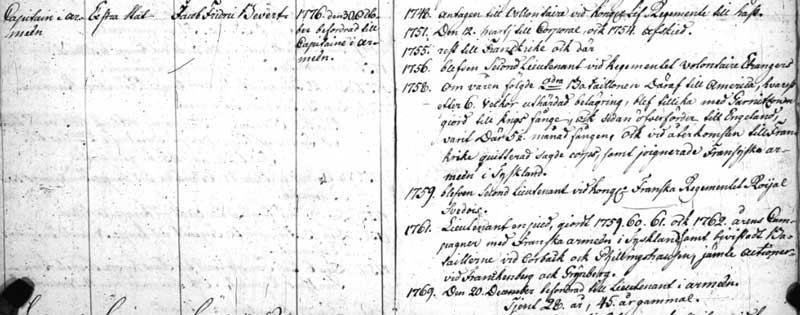 Capitain i ar-
meén
Extra Stat
Jacob Fridric Bevert
1776. den 30 Octo-
ber befordrad till
Capitaine i ar-
meén.
1748. antagen till Volontaire vid kongl. Lif Regemente till häst.
1751. Den 12. Martj till Corporal, och 1754. afsked.
1755. rest till Franckrike och där
1756. blefven Second Lieutenant vid Regementet Volontaire Etrangers
1758. om våren följde 2dra Bataillonen Däraf till America, hvarest
efter 6. Veckors uthärdad belägring, blef tillika med Garnizon
giord till krigs fånge, och sedan öfverförder till Engeland,
varit Där 5½ månad fången, och vid återkomsten till Fran-
krike quitterad sagde corps, samt joignerade Fransyska ar-
meén i Tyskland.
1759. blefven Second Lieutenant vid kongl. Franska Regementet Roijal
Svedois.
1761. Lieutenant en pied, giordt 1759. 60. 61. och 1762. årens Cam-
pagner med Franska armeén i Tyskland samt bevistadt Ba-
taillerne vid Corback och Fillingshausen, jämte actioner
vid Franckenberg och Grüneberg.
1769. Den 20. December befordrad till Lieutenant i armeén.
Tjent 28. år, 45. år gammal.